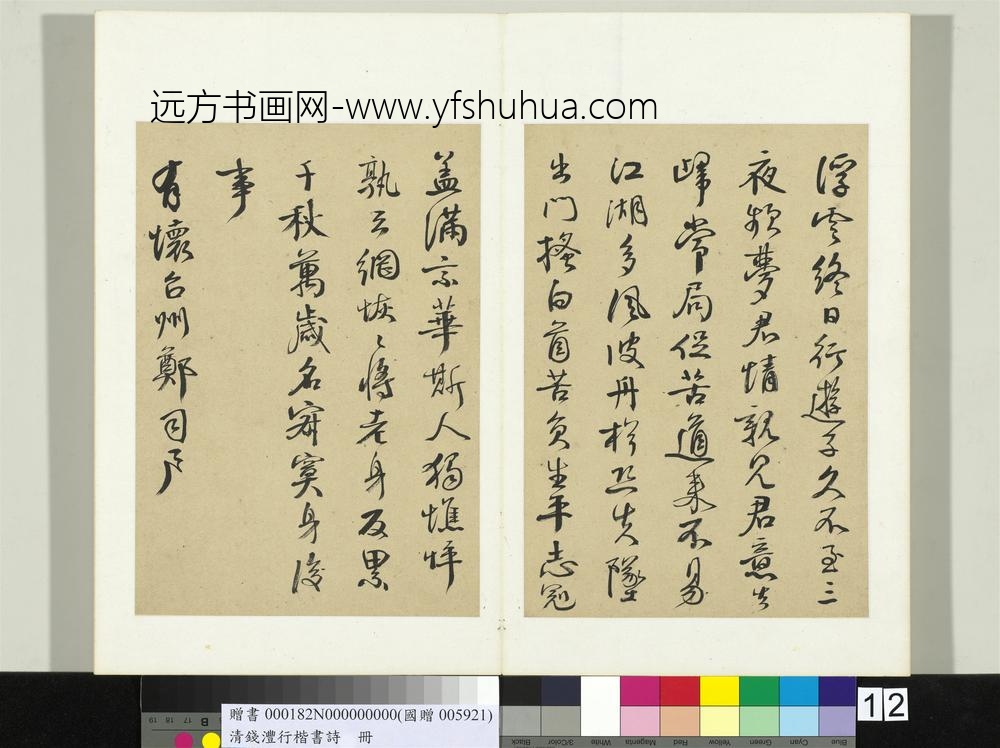 远方书画网-www.yfshuhua.com
浮雲終日行遊子久不至三
夜頻夢君情親見君意告
歸常局促苦道来不易
江湖多風波舟楫恐失墜
出門搔白首苦負生平志冠
蓋滿京華斯人獨憔悴
孰云網恢〻將老身反累
千秋萬歲名寂寞身後
事
有懷台州鄭司户
贈書 000182N000000000(國贈 005921)
清錢灃行楷書詩 冊
12
19 18 17 B
Black
3/Color
White
Magenta
Red
Yellow
Green
Cyan
Blue